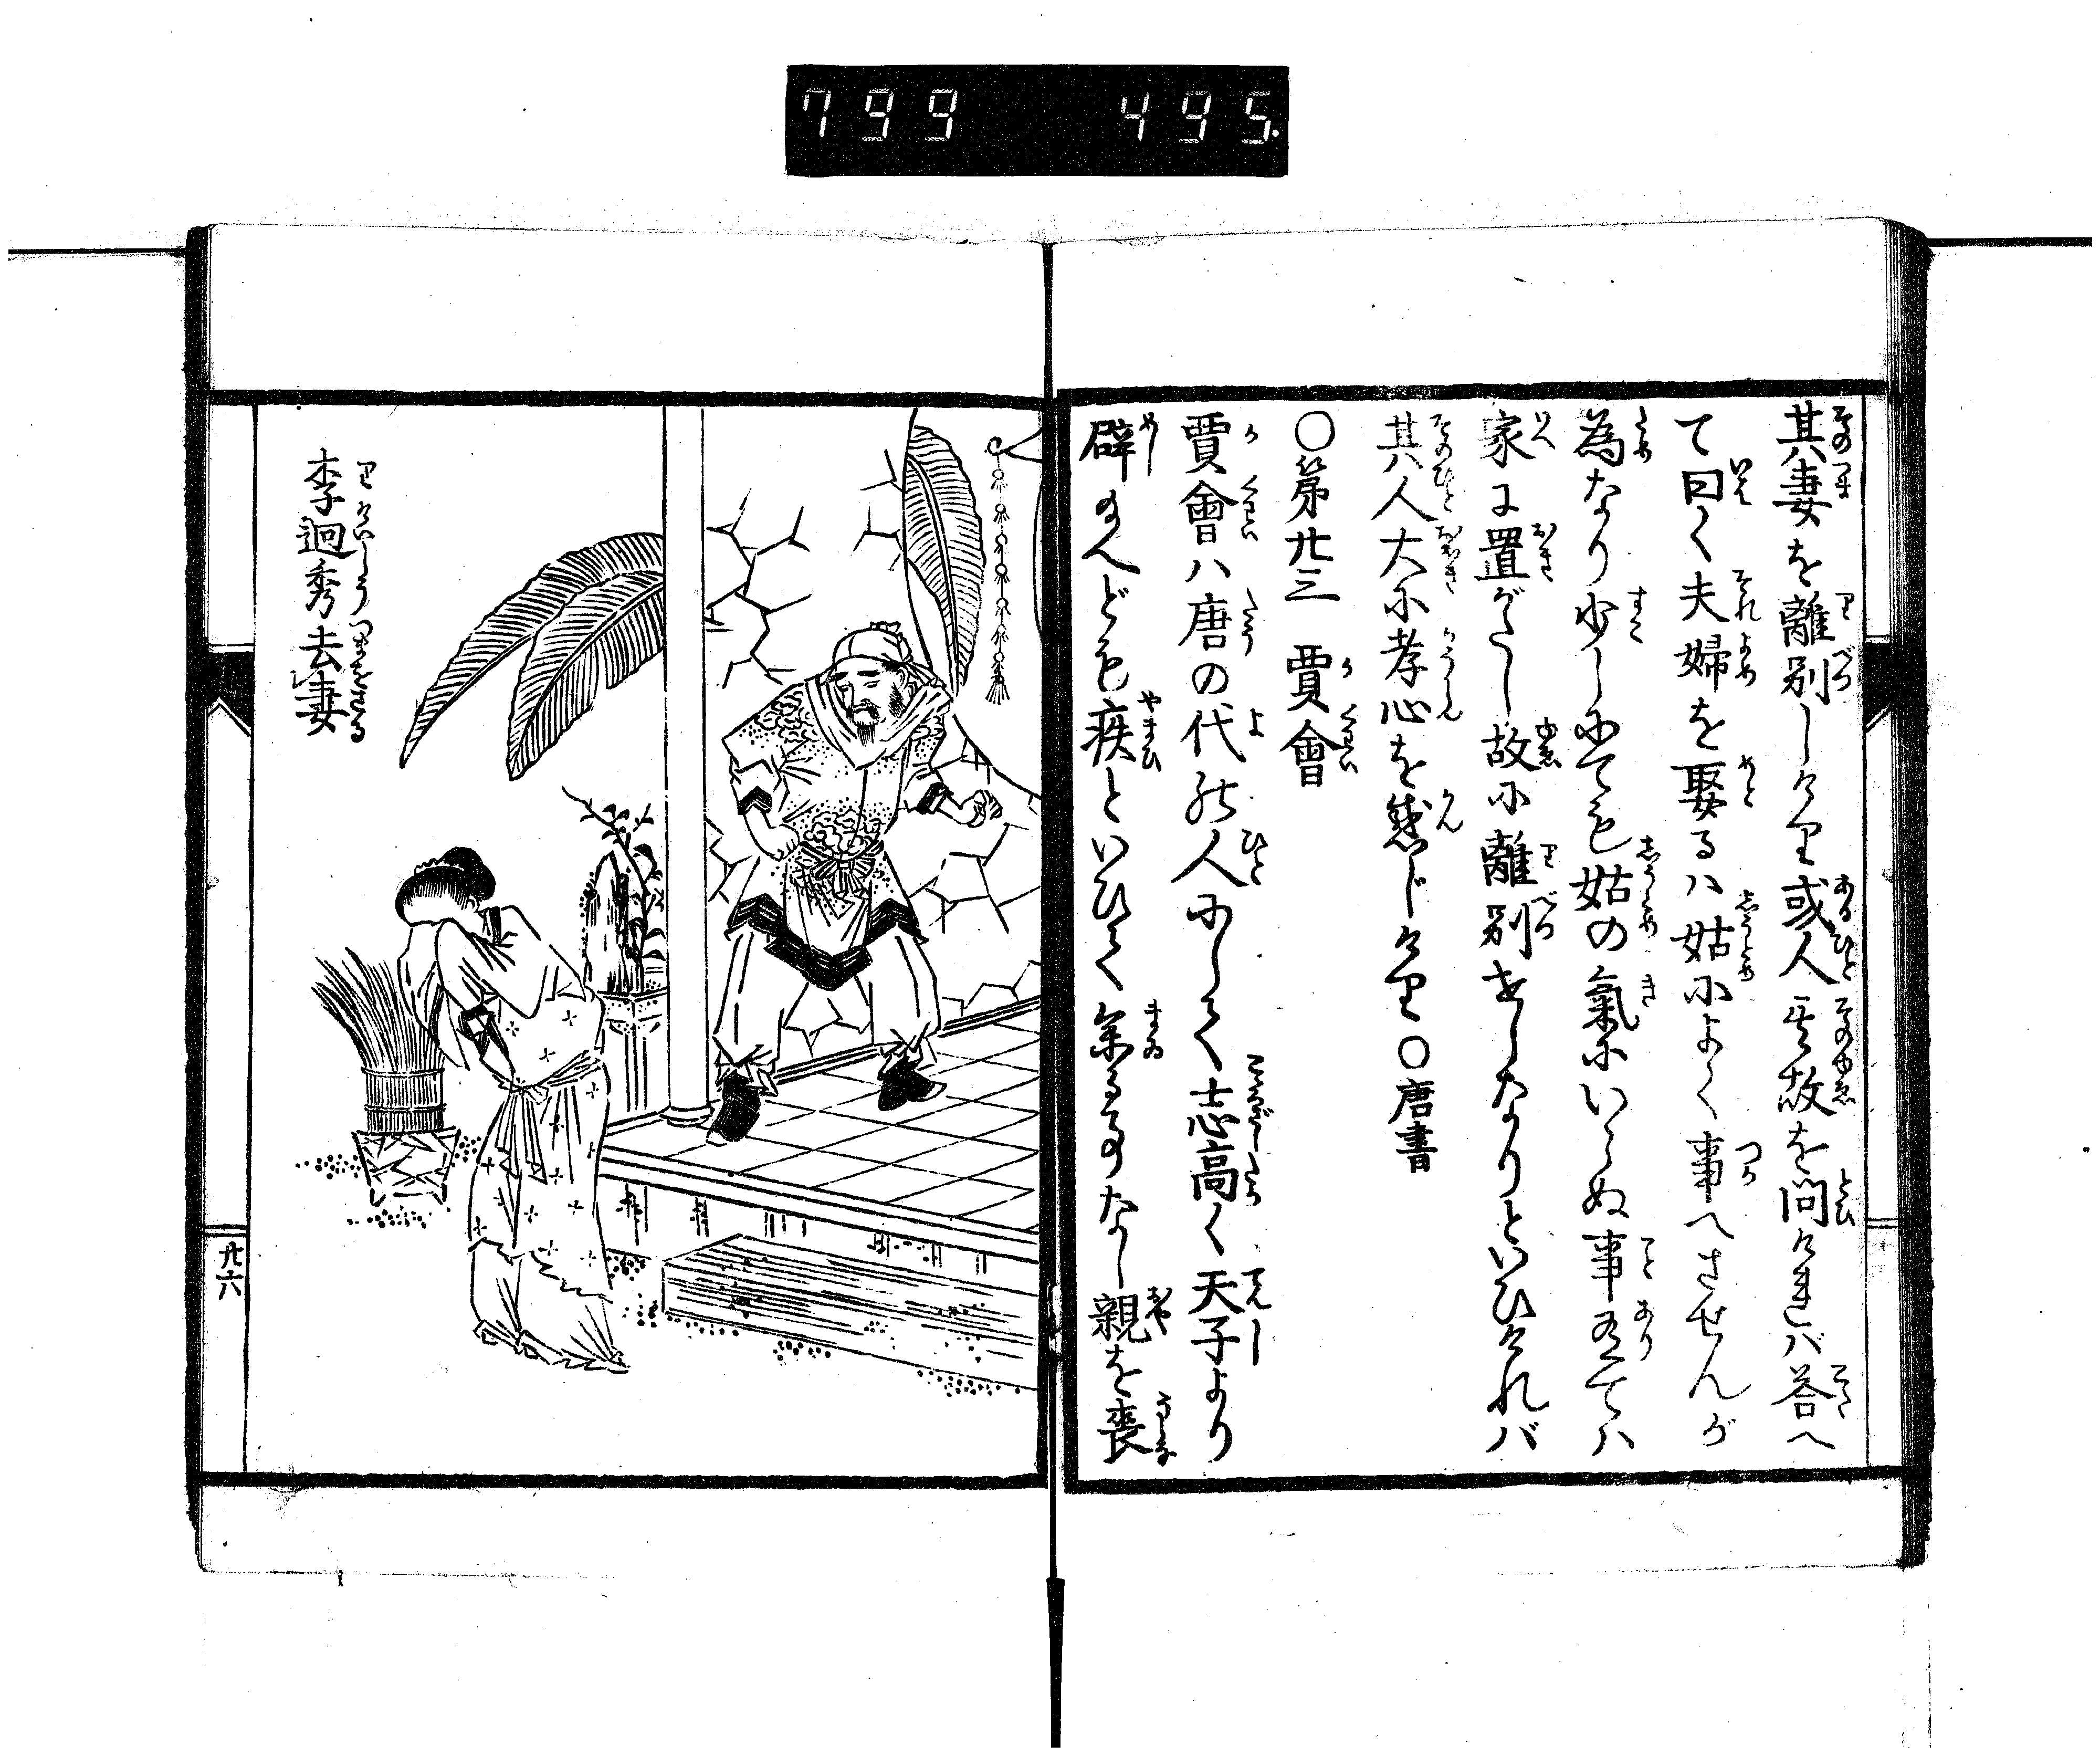 799 495.
其妻を離別しけり或人其故を問ければ答へ
て曰く夫婦を娶るハ姑によく事へさせんが
為なり少しにても姑の氣にいらぬ事有てハ
家に置がたし故に離別せしなりといひければ
其人大に孝心を感じけり〇唐書
〇第廿三 賈會
賈會ハ唐の代の人にして志高く天子より
辟るれども疾といひて參る事なし親を喪
李迥秀去妻
りけいしうつまをさる
廿六